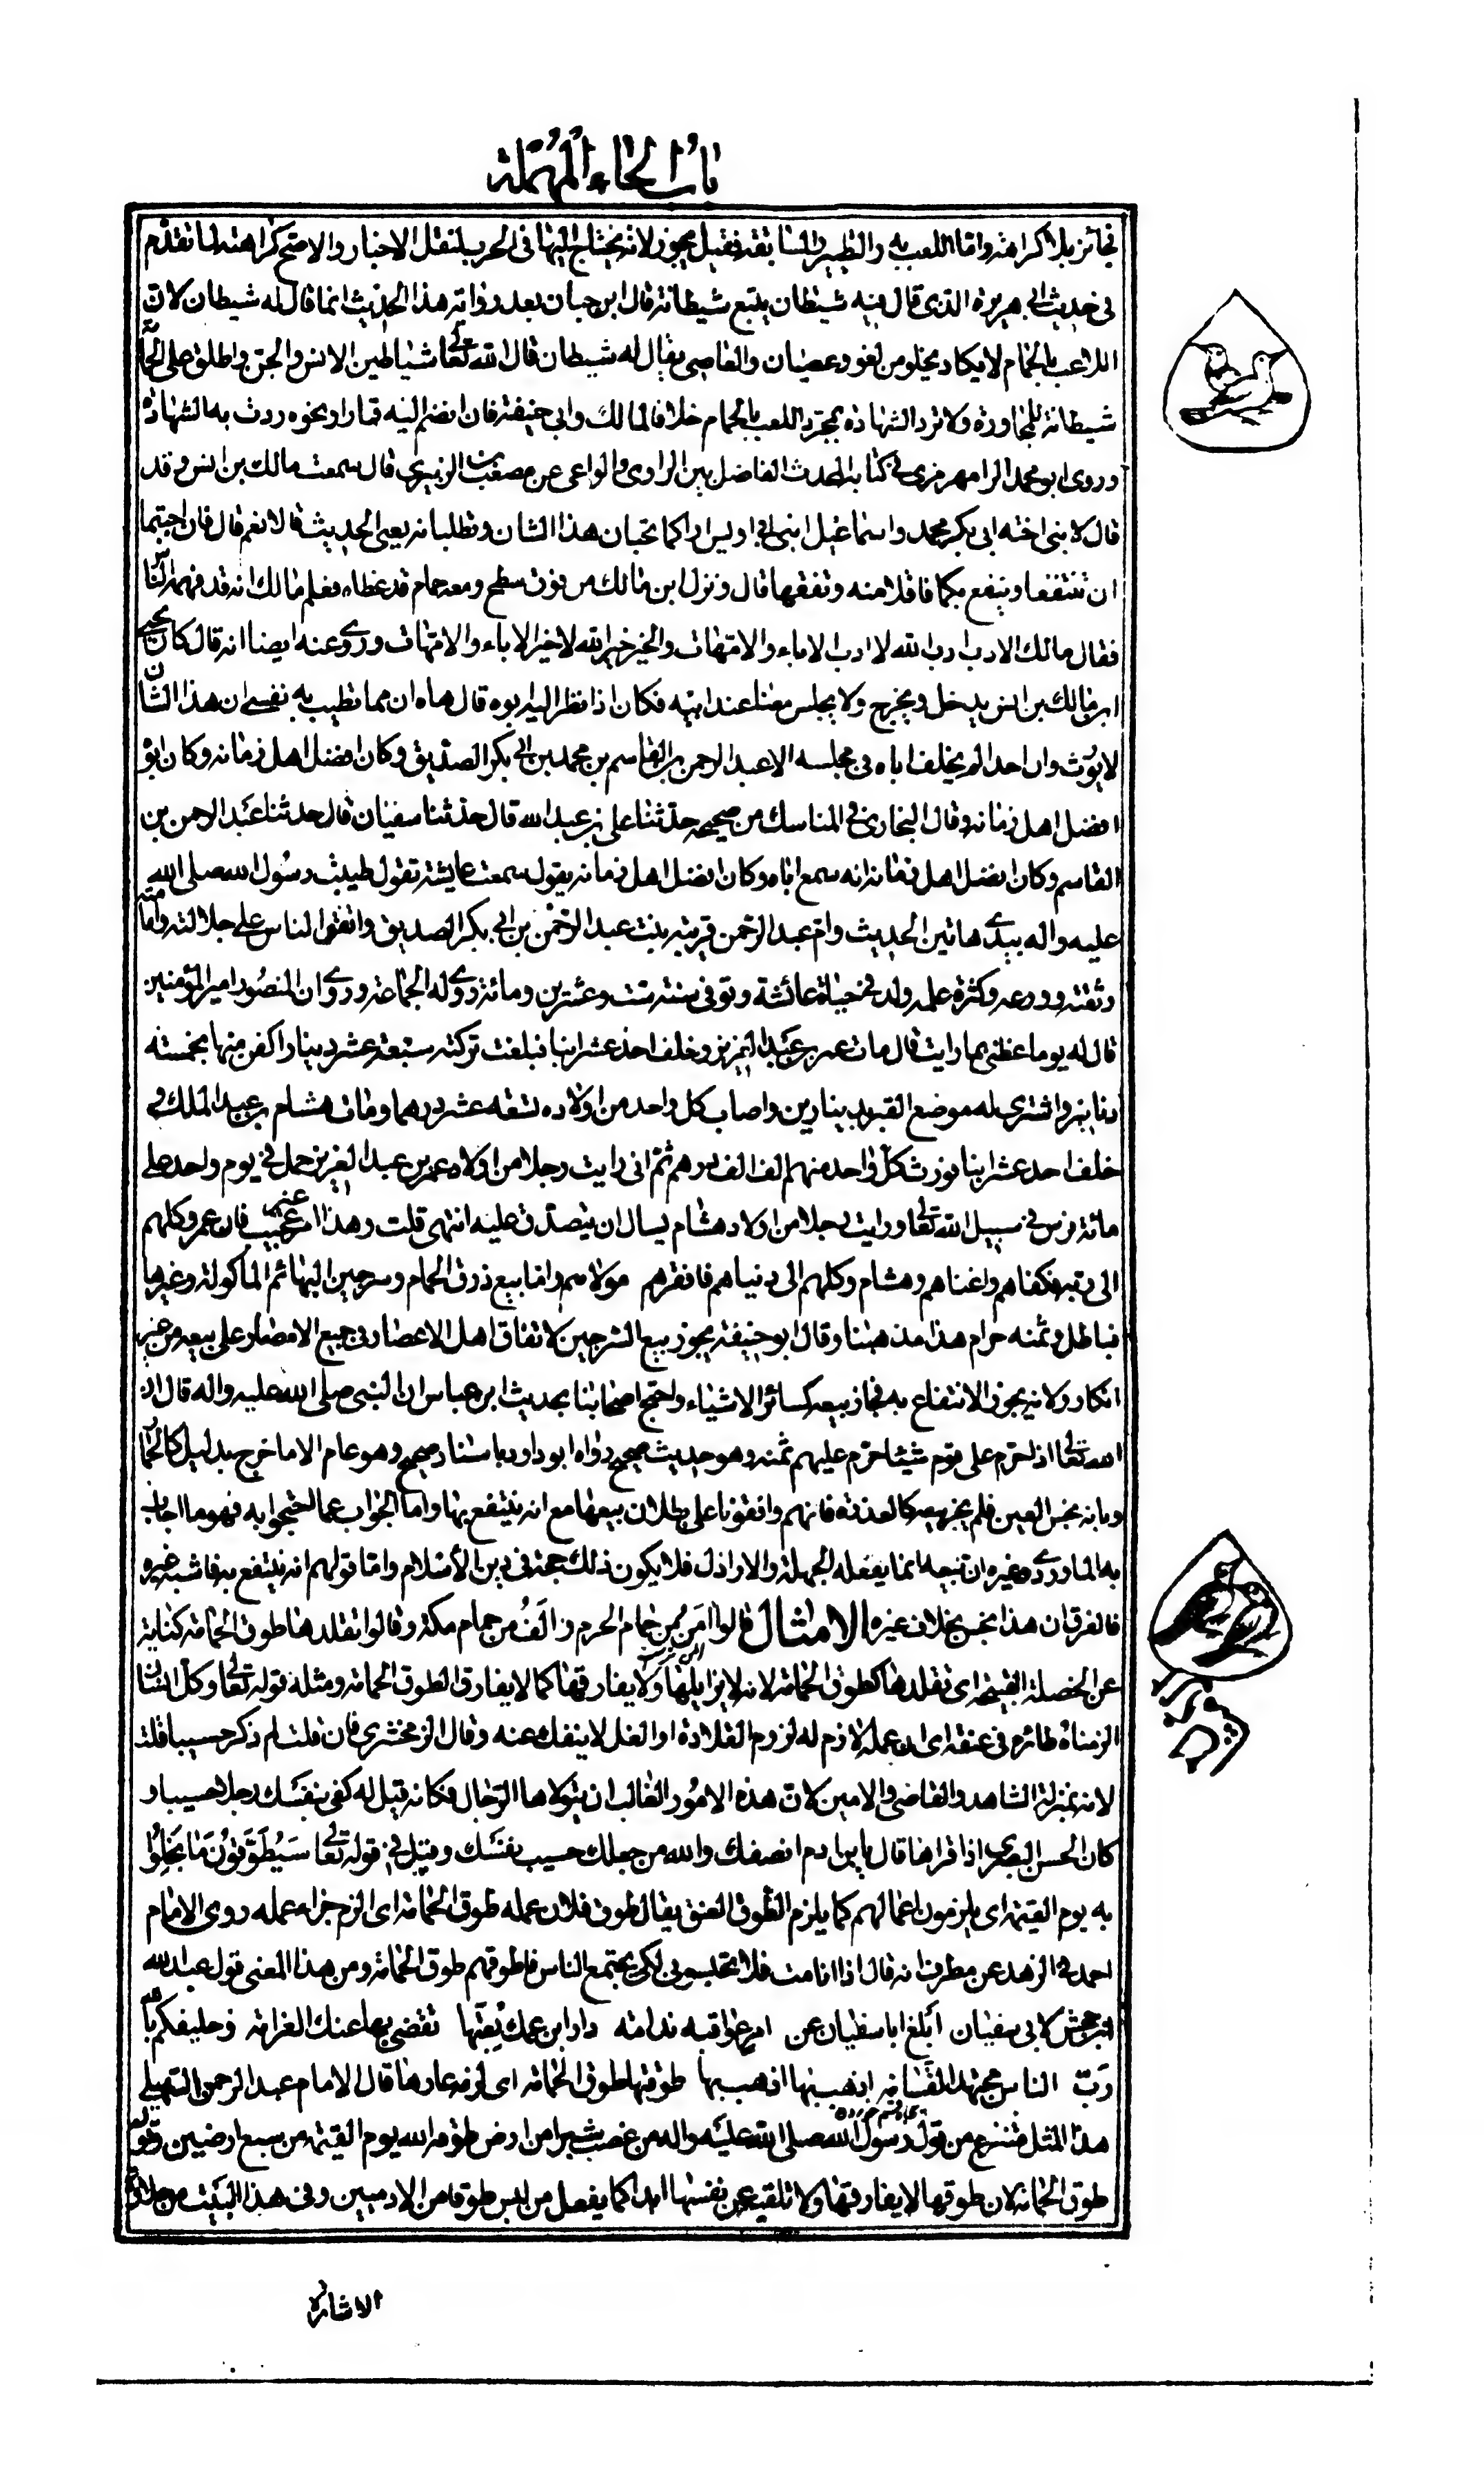 باب الحاء المهملة
فجائز بلا كراهة واما اللعب به والتطيير والمسابقة فقيل يجوز لانه يحتاج اليها فى الحرب لنقل الاخبار والاصح كراهته لما تقدم
فى حديث ابى هريرة الذى قال فيه شيطان يتبع شيطانة قال ابن حبان بعد روايته هذا الحديث انما قال له شيطان لان
اللاعب بالحمام لا يكاد يخلو من لغو وعصيان والعاصى يقال له شيطان قال الله تعالى شياطين الانس والجن واطلق على الحمامة
شيطانة للمجاورة ولا ترد الشهادة بمجرد اللعب بالحمام خلافا لمالك وابى حنيفة فان انضم اليه قمار او نحوه ردت به الشهادة
وروى ابو محمد الرامهرمزى فى كتابه المحدث الفاضل بين الراوى والواعى عن مصعب الزبيرى قال سمعت مالك بن انس وقد
قال لابنى اخته ابى بكر محمد واسماعيل ابنى ابى اويس اراكما تحبان هذا الشان وتطلبانه يعنى الحديث قالا نعم قال فان احببتما
ان تنتفعا وينفع بكما فاقلا منه وتفقها قال ونزل ابن مالك من فوق سطح ومعه حمام قد غطاه فعلم مالك انه قد فهمه الناس
فقال مالك الادب ادب الله لا ادب الاباء والامهات والخير خير الله لا خير الاباء والامهات وروى عنه ايضا انه قال كان يحيى
ابن مالك بن انس يدخل ويخرج ولا يجلس معنا عند ابيه فكان اذا نظر اليه ابوه قال هاه ان مما تطيب به نفسى ان هذا الشان
لا يورث وان احدا لم يخلف اباه فى مجلسه الا عبد الرحمن بن القاسم بن محمد بن ابى بكر الصديق وكان افضل اهل زمانه وكان ابوه
افضل اهل زمانه وقال البخارى فى المناسك من صحيحه حدثنا على بن عبد الله قال حدثنا سفيان قال حدثنا عبد الرحمن بن
القاسم وكان افضل اهل زمانه انه سمع اباه وكان افضل اهل زمانه يقول سمعت عايشة تقول طيبت رسول الله صلى الله
عليه واله بيدى هاتين الحديث وام عبد الرحمن قريبة بنت عبد الرحمن بن ابى بكر الصديق واتفق الناس على جلالته وامامته
وثقته وورعه وكثرة علمه ولد فى حياة عائشة وتوفى سنة ست وعشرين ومائة روى له الجماعة وروى ان المنصور امير المؤمنين
قال له يوما عظنى بما رايت قال مات عمر بن عبد العزيز وخلف احد عشر ابنا فبلغت تركته سبعة عشر دينارا كفن منها بخمسة
دنانير واشترى له موضع القبر بدينارين واصاب كل واحد من اولاده تسعة عشر درهما ومات هشام بن عبد الملك و
خلف احد عشر ابنا فورث كل واحد منهم الف الف درهم ثم انى رايت رجلا من اولاد عمر بن عبد العزيز حمل فى يوم واحد على
مائة فرس فى سبيل الله تعالى ورايت رجلا من اولاد هشام يسال ان يتصدق عليه انتهى قلت وهذا امر غير عجيب فان عمر وكلهم
الى ربه فكفاهم واغناهم وهشام وكلهم الى دنياهم فافقرهم مولاهم واما بيع ذرق الحمام وسرجين البهائم الماكولة وغيرها
فباطل وثمنه حرام هذا مذهبنا وقال ابو حنيفة يجوز بيع السرجين لاتفاق اهل الاعصار فى جميع الامصار على بيعه من غير
انكار ولانه يجوز الانتفاع به فجاز بيعه كسائر الاشياء واحتج اصحابنا بحديث ابن عباس ان النبى صلى الله عليه واله قال ان
الله تعالى اذا حرم على قوم شيئا حرم عليهم ثمنه وهو حديث صحيح رواه ابو داود باسناد صحيح وهو عام الا ما خرج بدليل كالحمار
وبانه نجس العين فلم يجز بيعه كالعذرة فانهم وافقونا على بطلان بيعها مع انه ينتفع بها واما الجواب عما احتجوا به فهو ما اجاب
به الماوردى وغيره ان بيعه انما يفعله الجهلة والاراذل فلا يكون ذلك حجة فى دين الاسلام واما قولهم انه ينتفع به فاشبه غيره
فالفرق ان هذا نجس بخلاف غيره الامثال قالوا امن من حمام الحرم والف من حمام مكة وقالوا تقلدها طوق الحمامة كناية
عن الخصلة القبيحة اى تقلدها كطوق الحمامة لانه لا يزايلها ولا يفارقها كما لا يفارق الطوق الحمامة ومثله قوله تعالى وكل انسان
الزمناه طائره فى عنقه اى ان عمله لازم له لزوم القلادة او الغل لا ينفك عنه وقال الزمخشرى فان قلت لم ذكر حسيبا قلت
لانه بمنزلة الشاهد والقاضى والامين لان هذه الامور الغالب ان يتولاها الرجال فكانه قيل له كفى بنفسك رجلا حسيبا و
كان الحسن البصرى اذا قراها قال يا بن ادم انصفك والله من جعلك حسيب نفسك وقيل فى قوله تعالى سيطوقون ما بخلوا
به يوم القيمة اى يلزمون اعمالهم كما يلزم الطوق العنق يقال طوق فلان عمله طوق الحمامة اى الزم جزاء عمله روى الامام
احمد فى الزهد عن مطرف انه قال اذا انا مت فلا تحبسونى لكى يجتمع الناس فاطوقهم طوق الحمامة ومن هذا المعنى قول عبد الله
ابن جحش لابى سفيان ابلغ ابا سفيان عن امر عواقبه ندامة دار ابن عمك بعتها تقضى بها عنك الغرامة وحليفكم بالله
رب الناس مجتهد القسامة اذهب بها اذهب بها طوقتها طوق الحمامة اى لزمه عارها قال الامام عبد الرحمن السهيلى
هذا المثل منتزع من قول رسول الله صلى الله عليه واله من غصب شبرا من ارض طوقه الله يوم القيمة من سبع ارضين وقوله
طوق الحمامة لان طوقها لا يفارقها ولا تلقيه عن نفسها ابدا كما يفعل من لبس طوقا من الادميين وفى هذا البيت من حلاوة
الاشارة